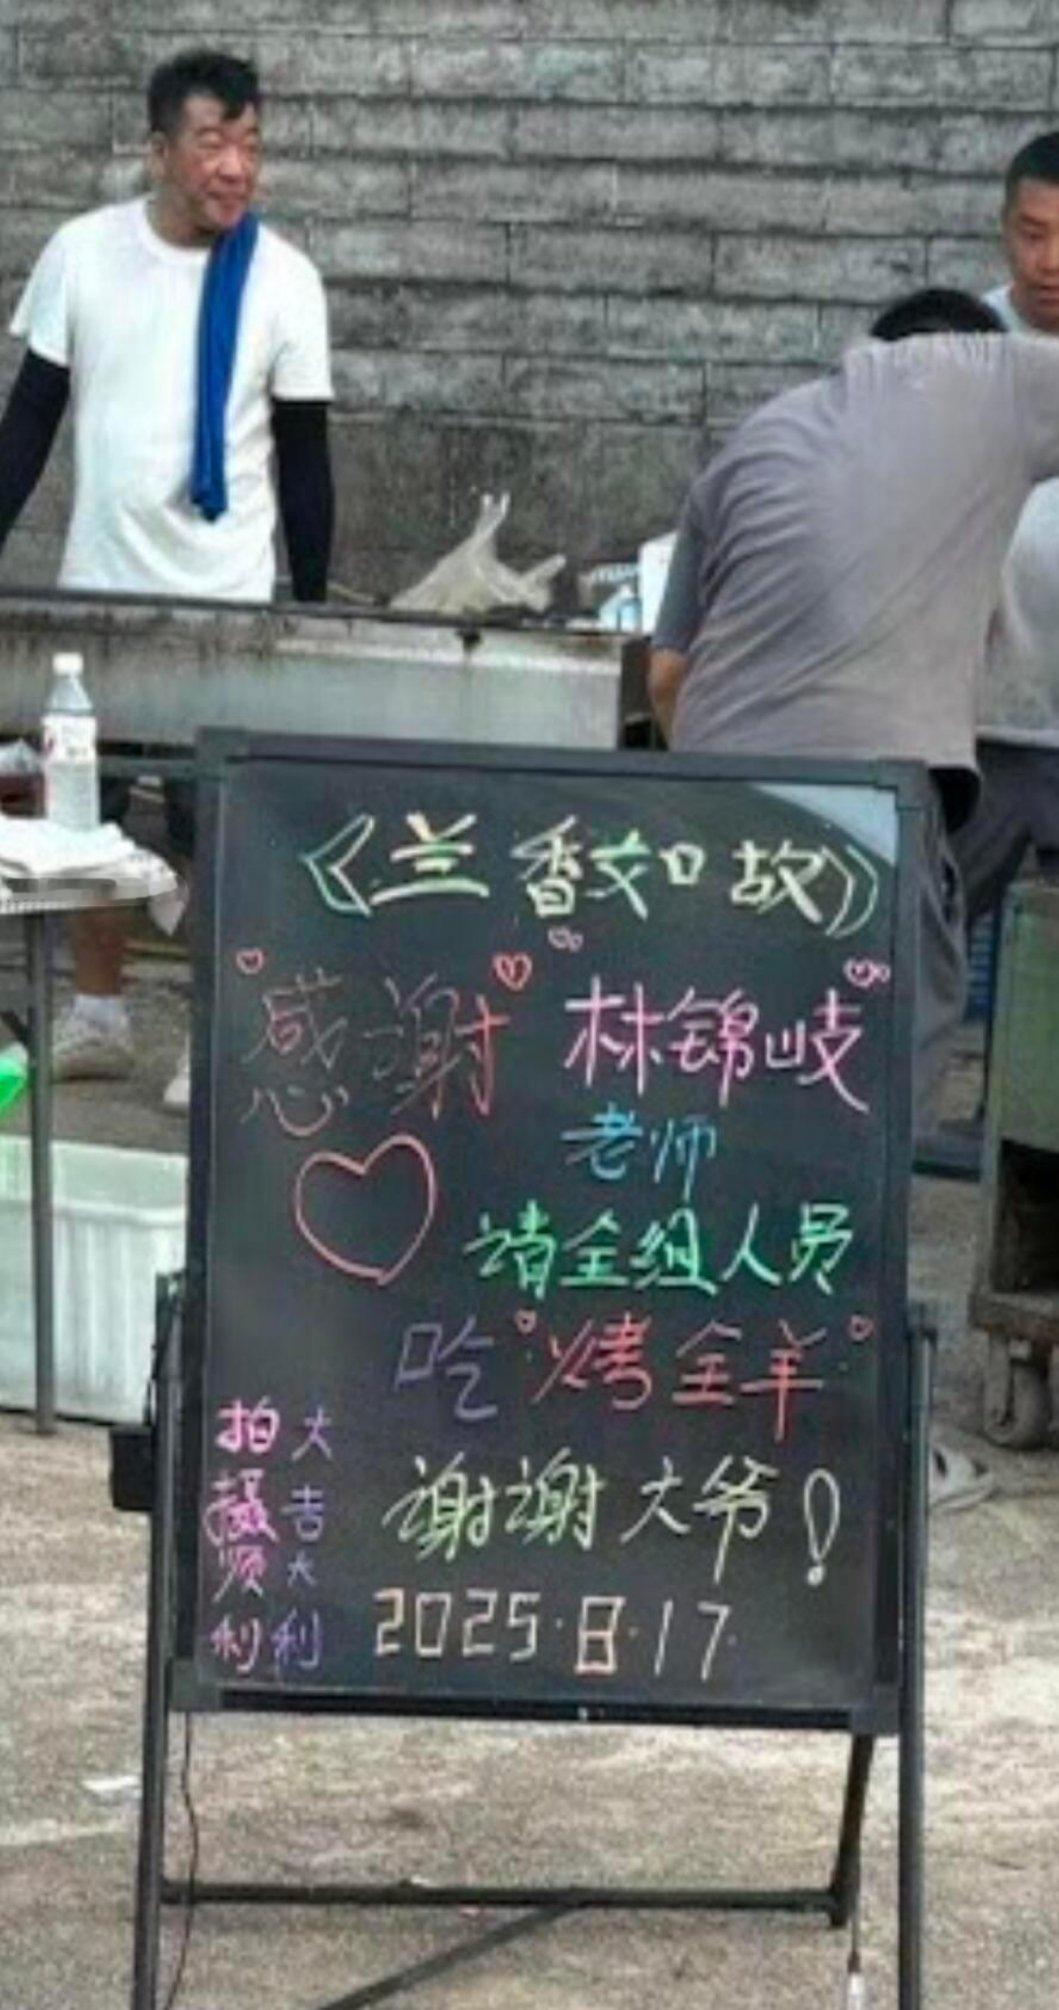 《兰香如故》
感谢 林锦岐
老师
请全组人员
吃"烤全羊"
谢谢大爷!
2025.8.17.
拍摄顺利
大吉大利